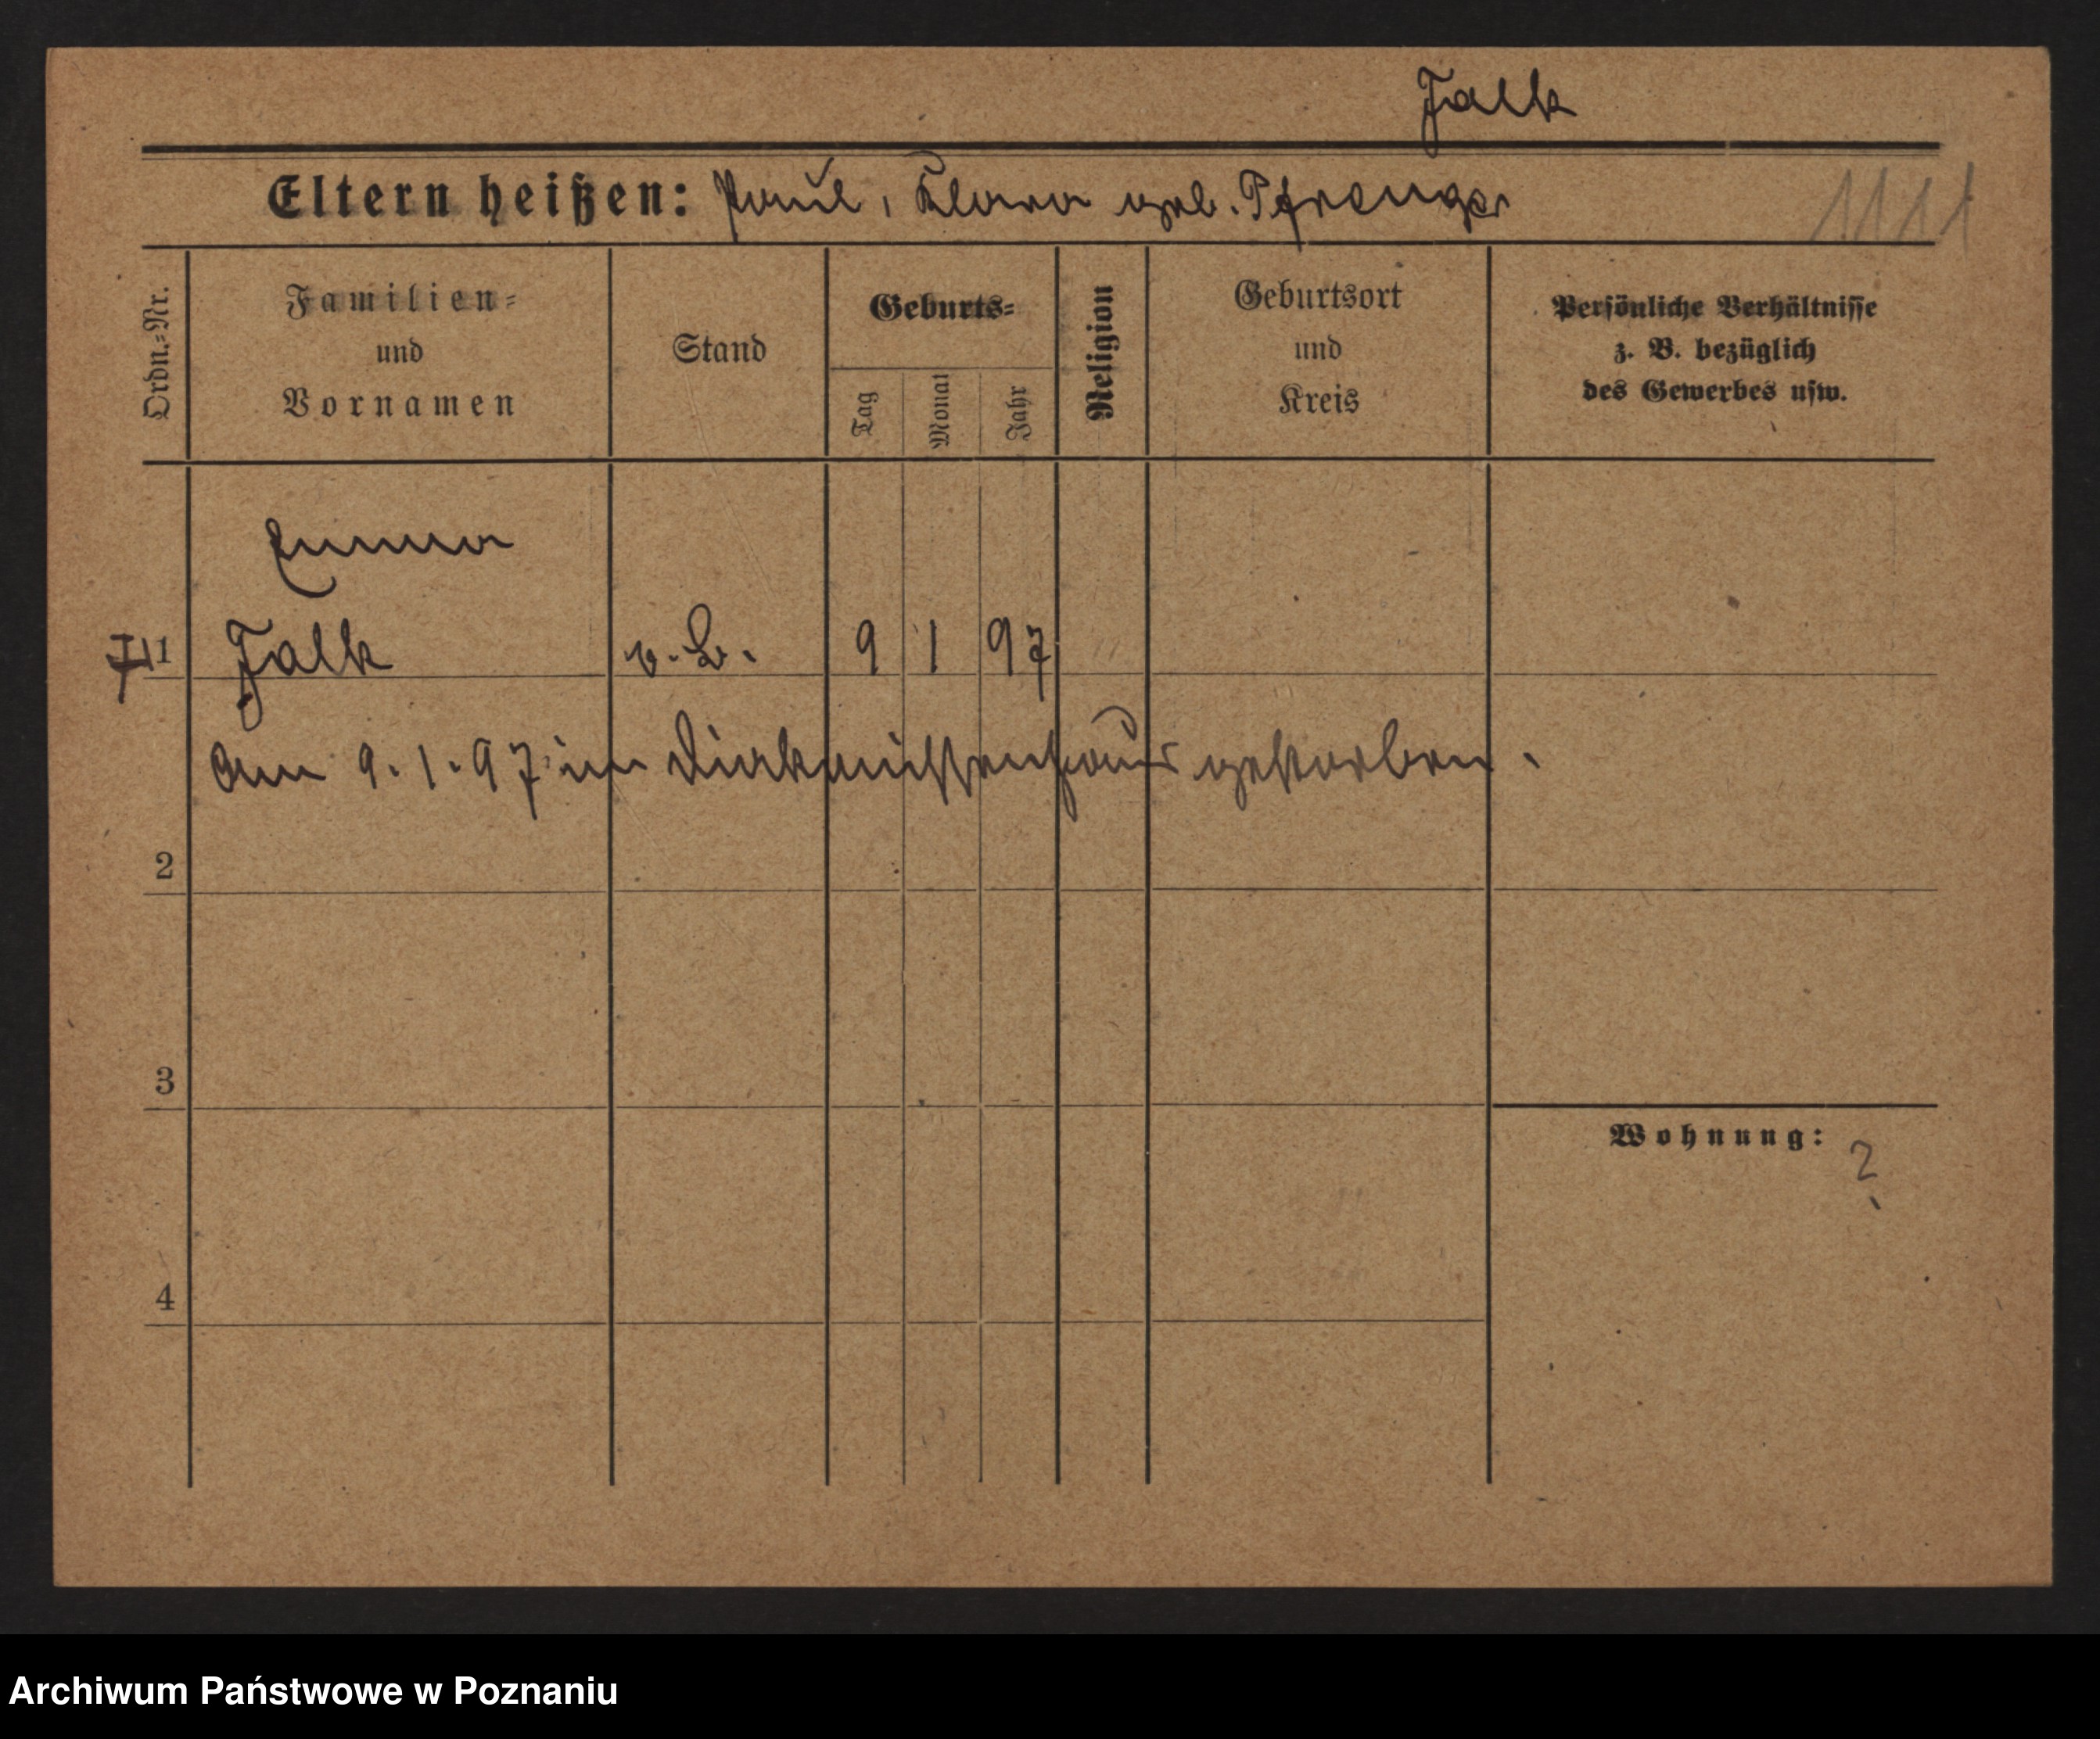 Falk
Eltern heißen: Paul, Klara geb. Pfrenger
1111
Ordn.-Nr.
Familien-
und
Vornamen
Stand
Geburts-
Tag
Monat
Jahr
Religion
Geburtsort
und
Kreis
Persönliche Verhältnisse
z. B. bezüglich
des Gewerbes usw.
Emma
1 Falk 9 1 97
am 9.1.97 im Diakonissenhaus gestorben.
2
3
Wohnung: ?
4
Archiwum Państwowe w Poznaniu